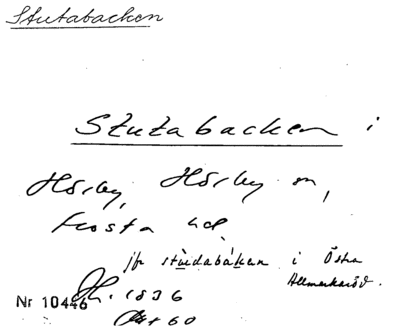 Stutabacken
Stutabacken i
Hörby, Hörby sn,
Frosta hd.
jfr stùdabákan i Östra
Allmenkaröd.
Nr 10446 1836
60